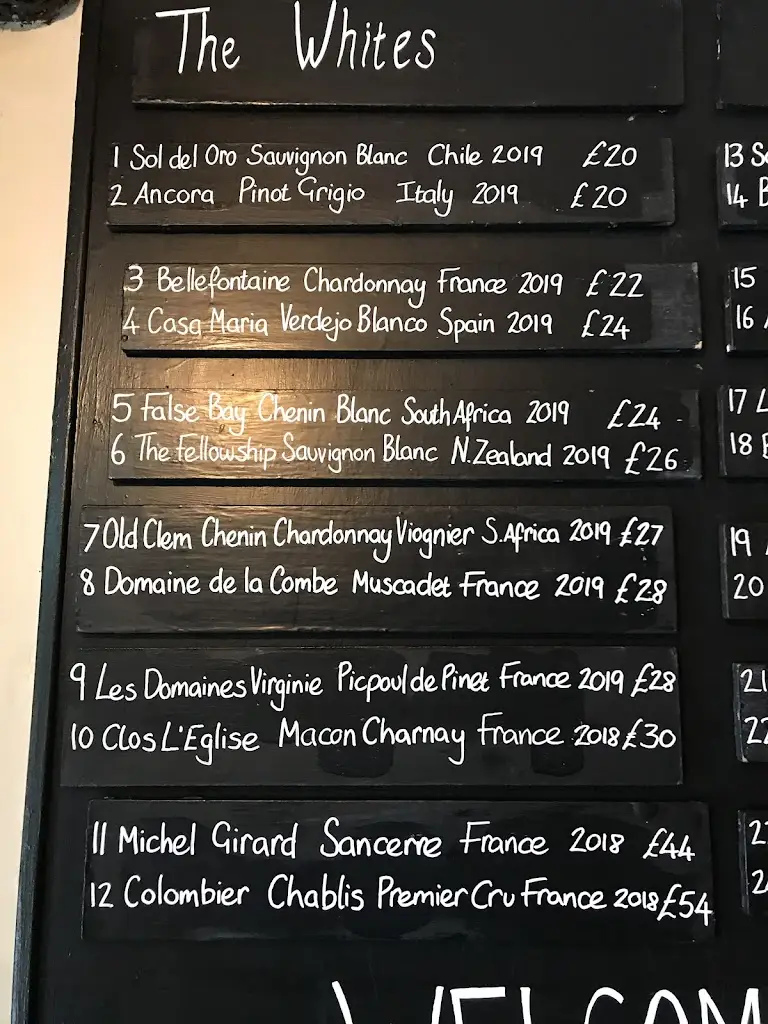 The Whites
1 Sol del Oro Sauvignon Blanc Chile 2019 £20
2 Ancora Pinot Grigio Italy 2019 £20
3 Bellefontaine Chardonnay France 2019 £22
4 Casa Maria Verdejo Blanco Spain 2019 £24
5 False Bay Chenin Blanc South Africa 2019 £24
6 The Fellowship Sauvignon Blanc N.Zealand 2019 £26
7 Old Clem Chenin Chardonnay Viognier S.Africa 2019 £27
8 Domaine de la Combe Muscadet France 2019 £28
9 Les Domaines Virginie Picpoul de Pinet France 2019 £28
10 Clos L'Eglise Macon Charnay France 2018 £30
11 Michel Girard Sancerre France 2018 £44
12 Colombier Chablis Premier Cru France 2018 £54
13
14
15
16
17
18
19
20
21
22